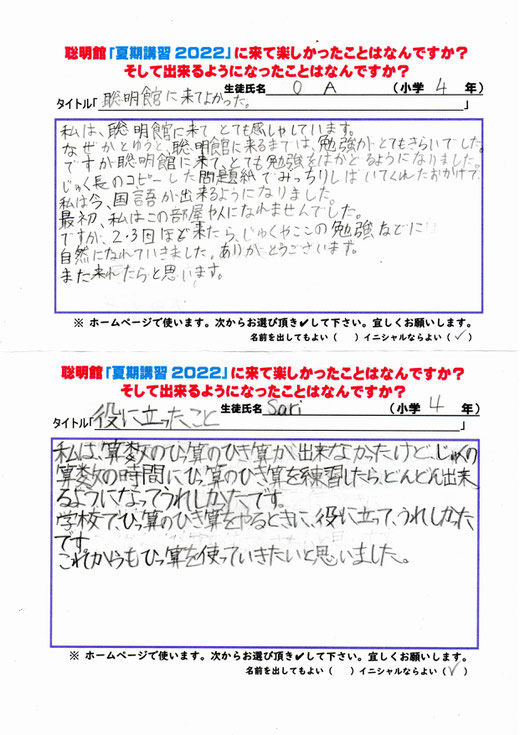 聡明館「夏期講習2022」に来て楽しかったことはなんですか？
そして出来るようになったことはなんですか？
生徒氏名 O A （小学 4 年）
タイトル「聡明館に来てよかった。」
私は、聡明館に来て、とても感しゃしています。
なぜかとゆうと、聡明館に来るまでは、勉強がとてもきらいでした。
ですが聡明館に来て、とても勉強をはかどるようになりました。
じゅく長のコピーした問題紙でみっちりしばいてくれたおかげで、
私は今、国語が出来るようになりました。
最初、私はこの部屋や人になれませんでした。
ですが、2・3回ほど来たら、じゅくやここの勉強などに
自然になれていきました。ありがとうございます。
また来れたらと思います。
※ ホームページで使います。次からお選び頂き✔して下さい。宜しくお願いします。
名前を出してもよい（　）イニシャルならよい（✓）
聡明館「夏期講習2022」に来て楽しかったことはなんですか？
そして出来るようになったことはなんですか？
生徒氏名 Sari （小学 4 年）
タイトル「役に立ったこと」
私は、算数のひっ算のひき算が出来なかったけど、じゅくの
算数の時間にひっ算のひき算を練習したら、どんどん出来
るようになってうれしかたです。
学校で、ひっ算のひき算をやるときに、役に立って、うれしかった
です。
これからもひっ算を使っていきたいと思いました。
※ ホームページで使います。次からお選び頂き✔して下さい。宜しくお願いします。
名前を出してもよい（　）イニシャルならよい（✓）